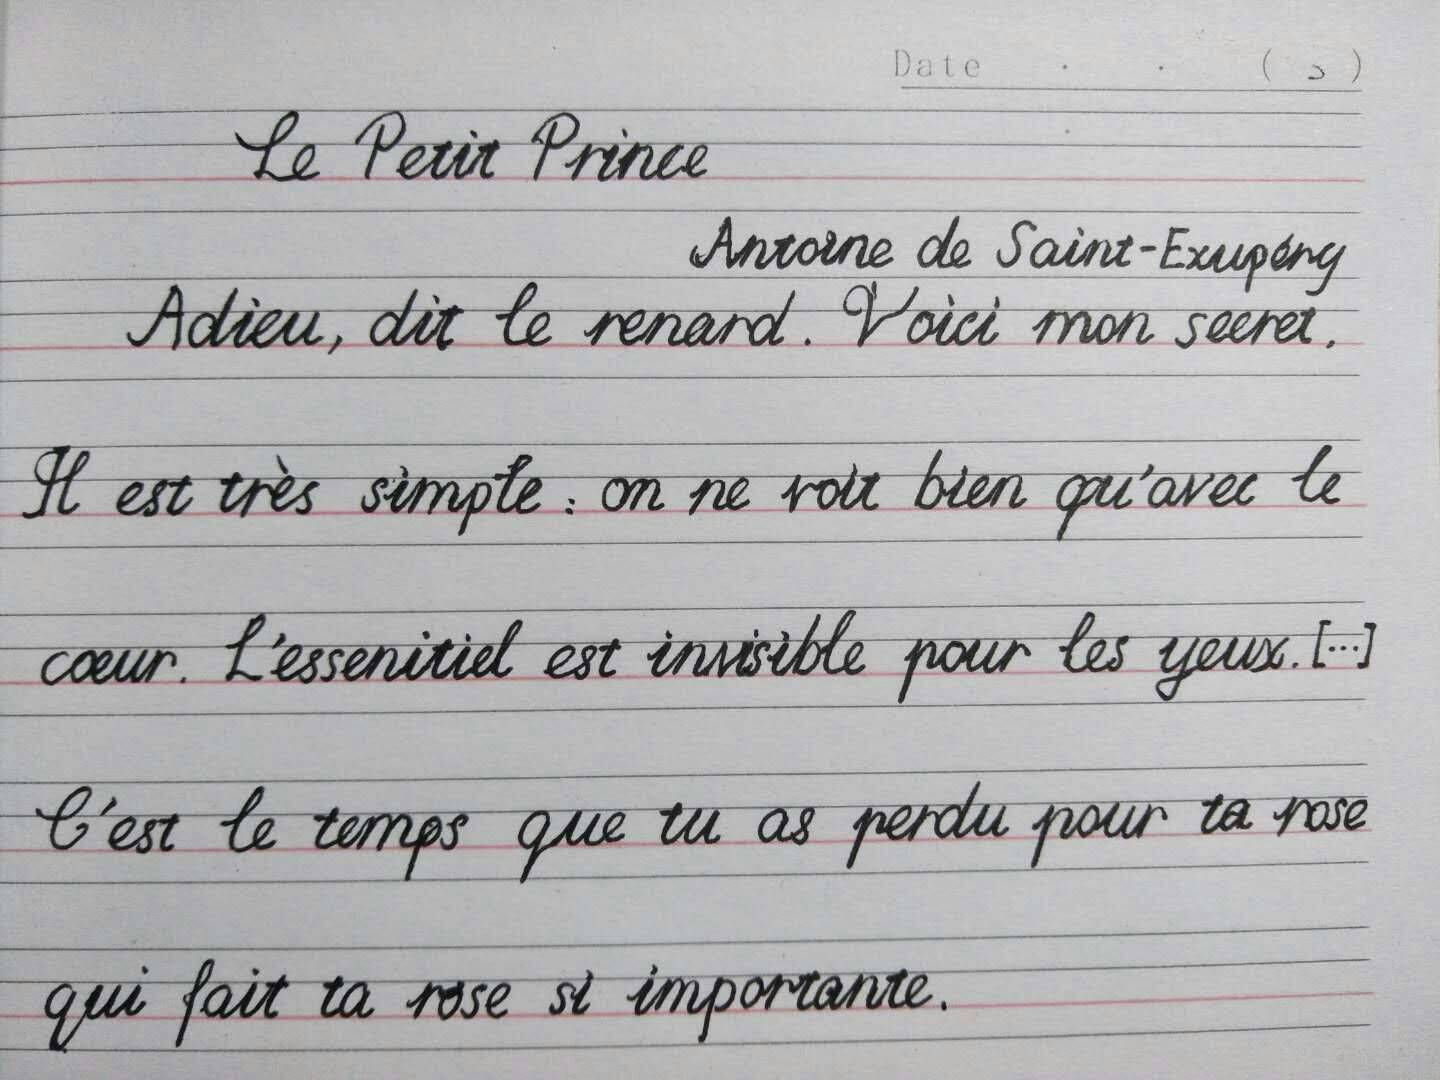 Date . . ( )
Le Petit Prince
Antoine de Saint-Exupéry
Adieu, dit le renard. Voici mon secret.
Il est très simple : on ne voit bien qu'avec le
cœur. L'essenitiel est invisible pour les yeux. [...]
C'est le temps que tu as perdu pour ta rose
qui fait ta rose si importante.